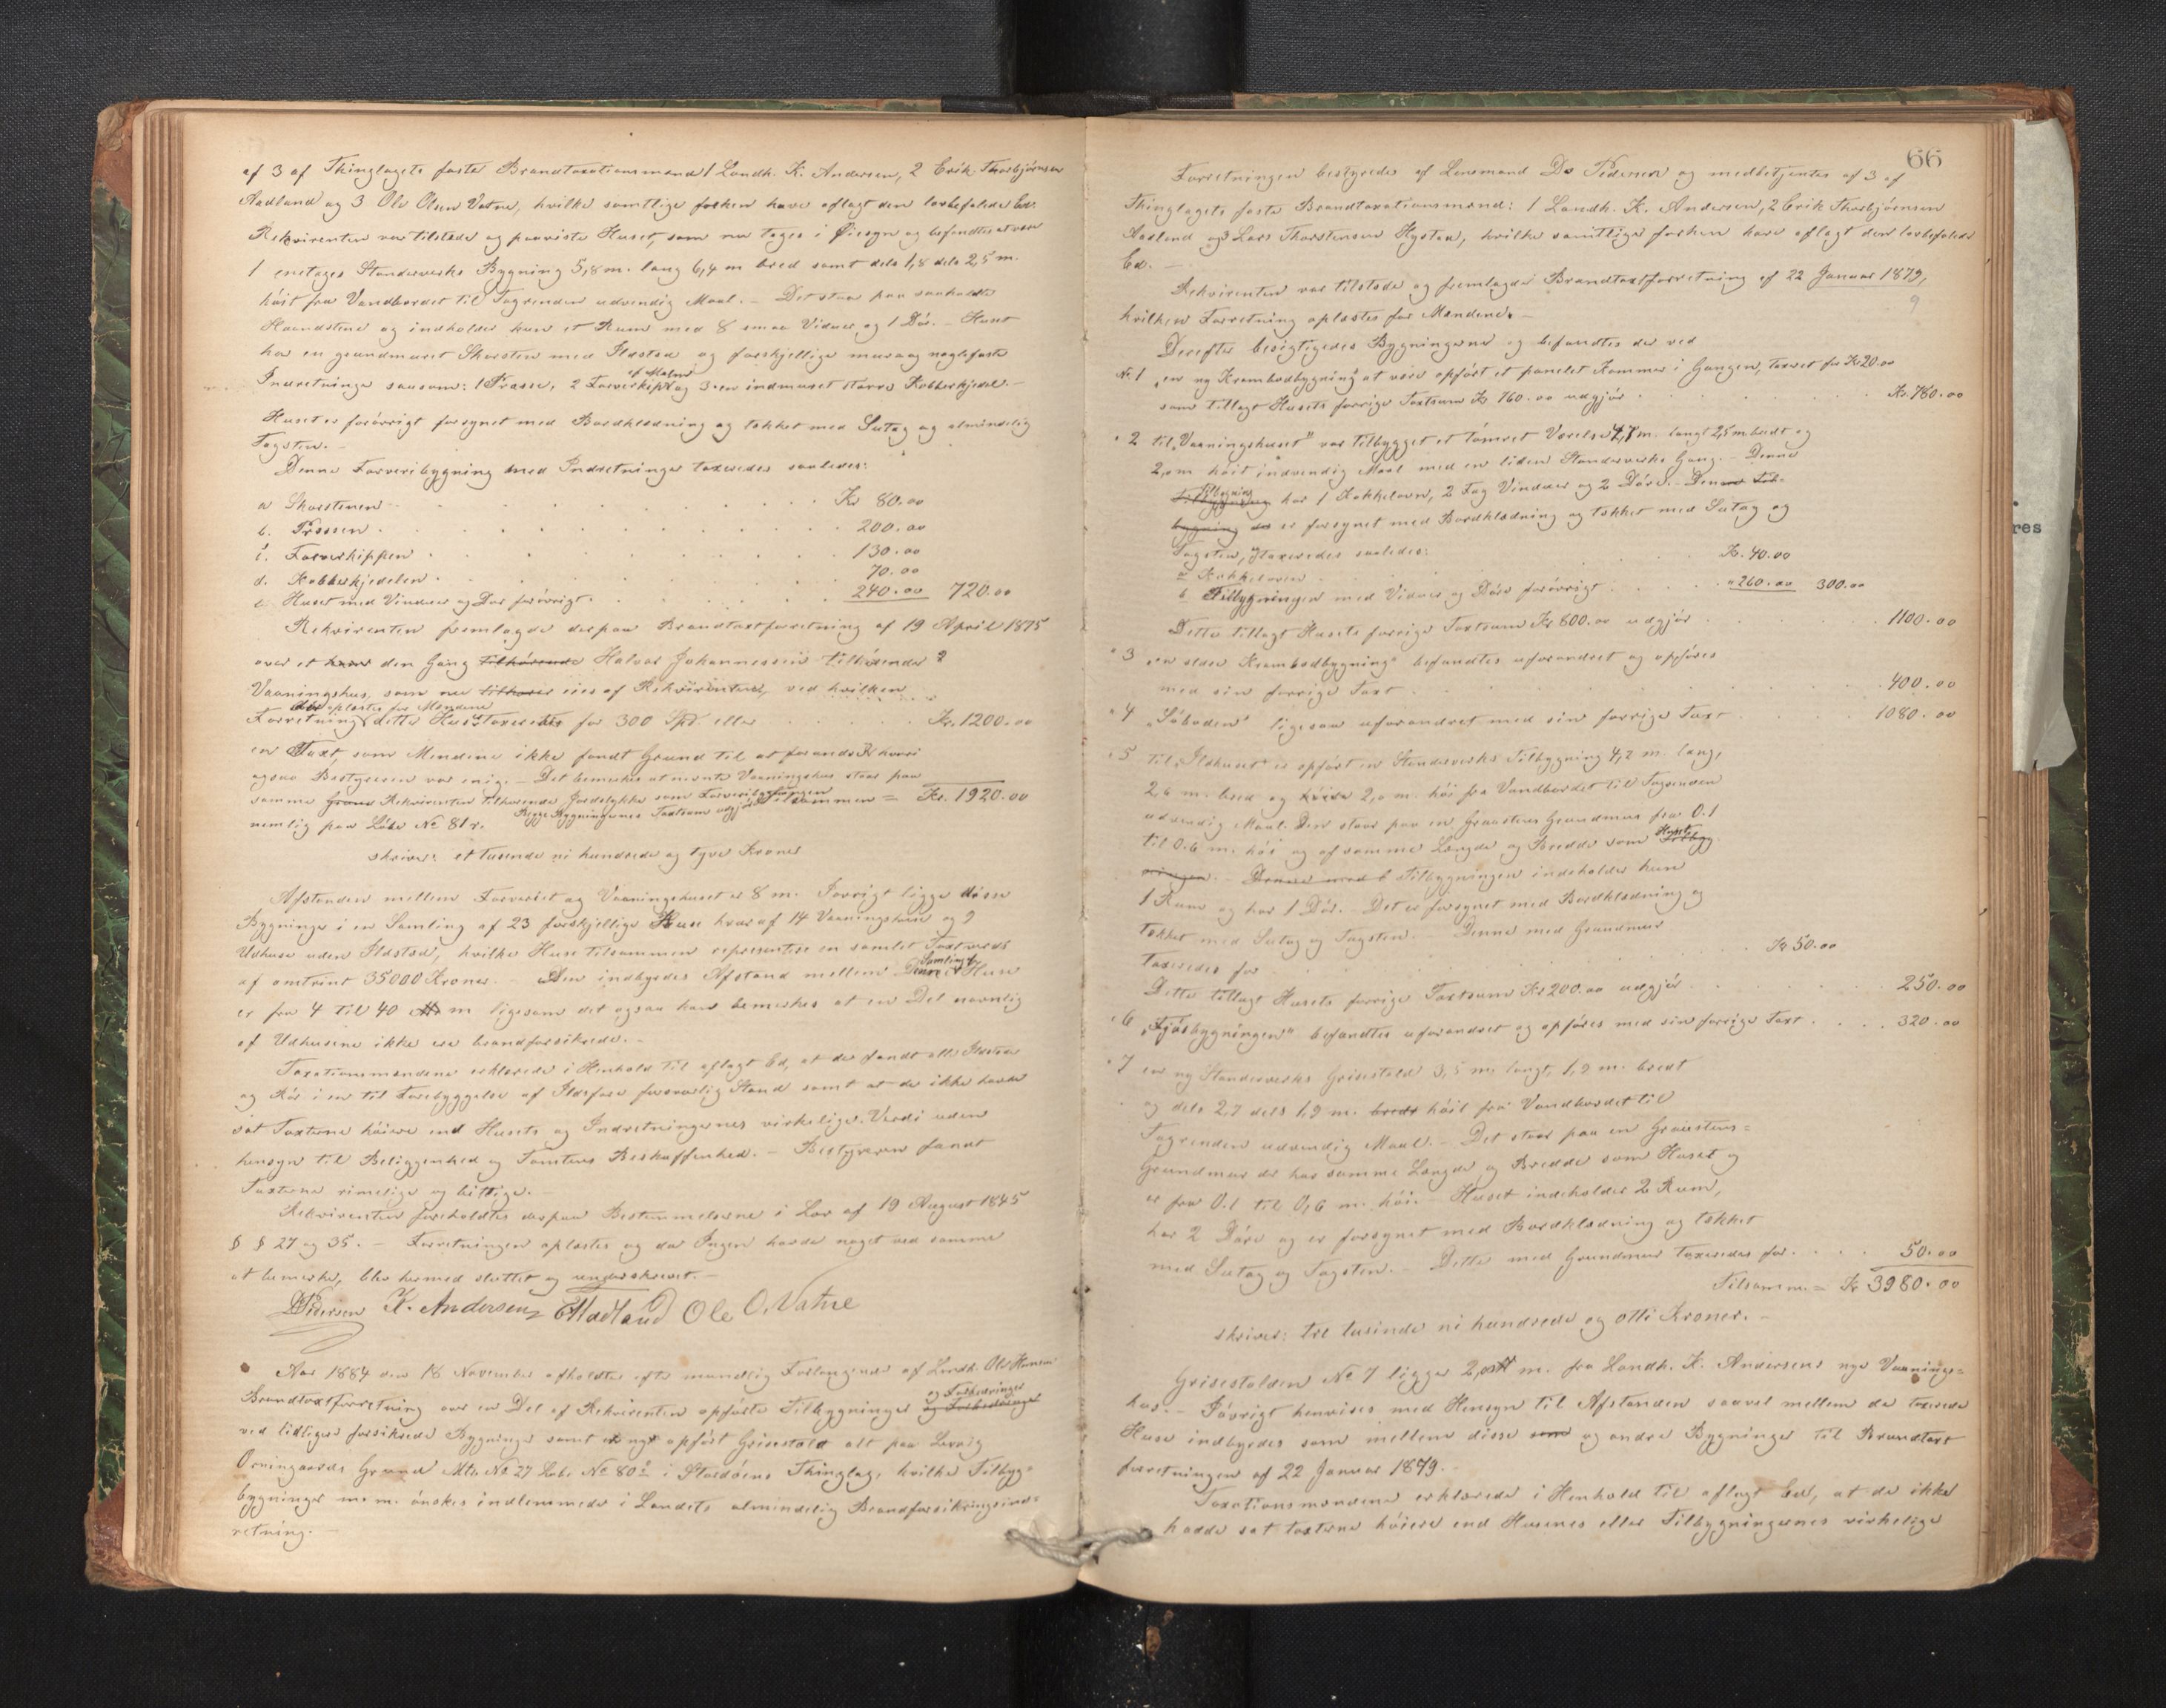 af 3 af Thinglagets faste Brandtaxationsmænd 1 Landh. K. Andersen, 2 Erik Thorbjørnsen
Aadland og 3 Ole Olsen Vatne, hvilke samtlige forhen have aflagt den lovbefalede Ed.
Rekvirenten var tilstede og paaviste Huset, som nu toges i Øiesyn og befandtes at være
1 enetages Standerverks Bygning 5,8 m. lang 6,4 m bred samt dels 1,8 dels 2,5 m.
høit fra Vandbordet til Tagrenden udvendig Maal. – Det staar paa saakaldte
Haandstene og indholder kun et Rum med 8 smaa Vinduer og 1 Dør. – Huset
har en grundmuret Skorsten med Ildsted og forskjellige mur og naglefaste
Indretninger saasom: 1 Presse, 2 Farverkipper af Malm og 3 en indmuret større Kobberkjedel. –
Huset er forøvrigt forsynet med Bordklædning og tækket med Sutag og almindelig
Tagsten. –
Denne Farveribygning med Indretninger taxeredes saaledes:
a Skorstenen Kr 80.00
b. Pressen 200.00
c. Farverkippen 130.00
d. Kobberkjedelen 70.00
e Huset med Vinduer og Dør forøvrigt 240.00 720.00
Rekvirenten fremlagde derpaa Brandtaxtforretning af 19 April 1875
over et den Gang tilhørende Halvor Johannessen tilhørende
Vaaningshus, som nu tilhører eies af Rekvirenten, ved hvilken
Forretning der oplæstes for Mændene dette Hus taxeredes for 300 Spd. eller Kr. 1200.00
en Taxt, som Mændene ikke fandt Grund til at forandre hvori
ogsaa Bestyreren var enig. – Det bemærkes at nævnte Vaaningshus staar paa
samme Grund Rekvirenten tilhørende Jordstykke som Farveribygningen
nemlig paa Løbe No 81 r. Begge Bygningernes Taxtsum udgjør tilsammen = Kr. 1920.00
skriver: et tusende ni hundrede og tyve Kroner
Afstanden mellem Farveriet og Vaaningshuset er 8 m. Forøvrigt ligge disse
Bygninger i en Samling af 23 forskjellige Huse hvoraf 14 Vaaningshuse og 9
Udhuse uden Ildsted, hvilke Huse tilsammen repræsentere en samlet Taxtværdi
af omtrent 35000 Kroner. Den indbyrdes Afstand mellem Denne Samling af Huse
er fra 4 til 40 m ligesom det ogsaa kan bemærkes at en Del navnlig
af Udhusene ikke ere brandforsikrede. –
Taxationsmændene erklærede i Henhold til aflagt Ed, at de fandt alle Ildsteder
og Rør i en til Forebyggelse af Ildsfare forsvarlig Stand samt at de ikke havde
sat Taxterne høiere end Husets og Indretningernes virkelige Verdi uden
hensyn til Beliggenhed og Tomtens Beskaffenhed. – Bestyreren fandt
Taxterne rimelige og billige. –
Rekvirenten foreholdtes derpaa Bestemmelserne i Lov af 19 August 1845
§ § 27 og 35. – Forretningen oplæstes og da Ingen havde noget ved samme
at bemerke, blev hermed sluttet og underskrevet. –
DPedersen K. Andersen EAadland Ole O. Vatne
Aar 1884 den 18 November afholdtes efter mundtlig Forlangende af Landh. Ole Hansen
Brandtaxtforretning over en Del af Rekvirenten opførte Tilbygninger og Forbedringer og Forbedringer
ved tidligere forsikrede Bygninger samt en nye opført Grisestald alt paa Lervig
Orningaards Grund Mtr. No 27 Løb. No 80 i Stordøens Thinglag, hvilke Tilbyg=
bygninger m. m. ønskes indlemmede i Landets almindelig Brandforsikringsind=
retning. –
66
Forretningen bestyredes af Lensmand Ds Pedersen og medbetjentes af 3 af
Thinglagets faste Brandtaxationsmænd: 1 Landh. K. Andersen, 2 Erik Thorbjørnsen
Aadland og 3 Lars Thorstensen Hystad, hvilke samtlige forhen have aflagt den lovbefalede
Ed. –
Rekvirenten var tilstede og fremlagde Brandtaxtforretning af 22 Januar 1879,
9
hvilken Forretning oplæstes for Mændene. –
Derefter besigtigedes Bygningerne og befandtes der ved
No. 1 „en ny Krambodbygning" at være opført et panelet Kammer i Gangen, taxeret for Kr 20.00
som tillagt Husets forrige Taxtsum Kr 760.00 udgjør Kr. 780.00
" 2 til „Vaaningshuset" var tilbygget et tømret Værelse 4,7 m. langt 2,5 m. bredt og
2,0 m høit indvendig Maal med en liden Standerverks Gang. – Denne
Tilbygning har 1 Kakkelovn, 2 Fag Vinduer og 2 Døre. Denne Til=
bygning der er forsynet med Bordklædning og tækket med Sutag og
Tagsten, og taxeredes saaledes:
a Kakkelovnen Kr. 40.00
b Tilbygningen med Vinduer og Døre forøvrigt " 260.00 300.00
Dette tillagt Husets forrige Taxtsum Kr 800.00 udgjør 1100.00
" 3 „en eldre Krambodbygning" befandtes uforandret og opføres
med sin forrige Taxt 400.00
" 4 „Søboden" ligesaa uforandret med sin forrige Taxt 1080.00
" 5 til „Ildhuset" er opført en Standerverks Tilbygning 4,2 m. lang,
2,6 m. bred og høide 2,0 m. høi fra Vandbordet til Tagrenden
udvendig Maal. Den staar paa en Graastens Grundmur fra 0.1
til 0.6 m. høi og af samme Længde og Bredde som Huset Tilbyg
ningen. – Denne med Tilbygningen indeholder kun
1 Rum og har 1 Dør. Det er forsynet med Bordklædning og
tækket med Sutag og Tagsten. Denne med Grundmur
taxeredes for Kr 50.00
Dette tillagt Husets forrige Taxtsum Kr 200.00 udgjør 250.00
" 6 „Fjøsbygningen" befandtes uforandret og opføres med sin forrige Taxt 320.00
" 7 en ny Standerverks Grisestald 3,5 m. langt, 1,9 m. bredt
og dels 2,7 dels 1,9 m. bredt høit fra Vandbordet til
Tagrenden udvendig Maal. – Det staar paa en Graastens=
Grundmur der har samme Længde og Bredde som Huset og
er fra 0.1 til 0,6 m. høi. – Huset indeholder 2 Rum,
har 2 Døre og er forsynet med Bordklædning og tækket
med Sutag og Tagsten. – Dette med Grundmur taxeredes for 50.00
Tilsamm. = Kr 3980.00
skriver: tre tusinde ni hundrede og otti Kroner. –
Grisestalden No 7 ligger 2,0 m. fra Landh. K. Andersens nye Vaanings=
hus. – Iøvrigt henvises med Hensyn til Afstanden saavel mellem de taxerede
Huse indbyrdes som mellem disse som og andre Bygninger til Brandtaxt
forretningen af 22 Januar 1879. –
Taxationsmændene erklærede i Henhold til aflagt Ed, at de ikke
havde sat taxterne høiere end Husenes eller Tilbygningernes virkelige
res